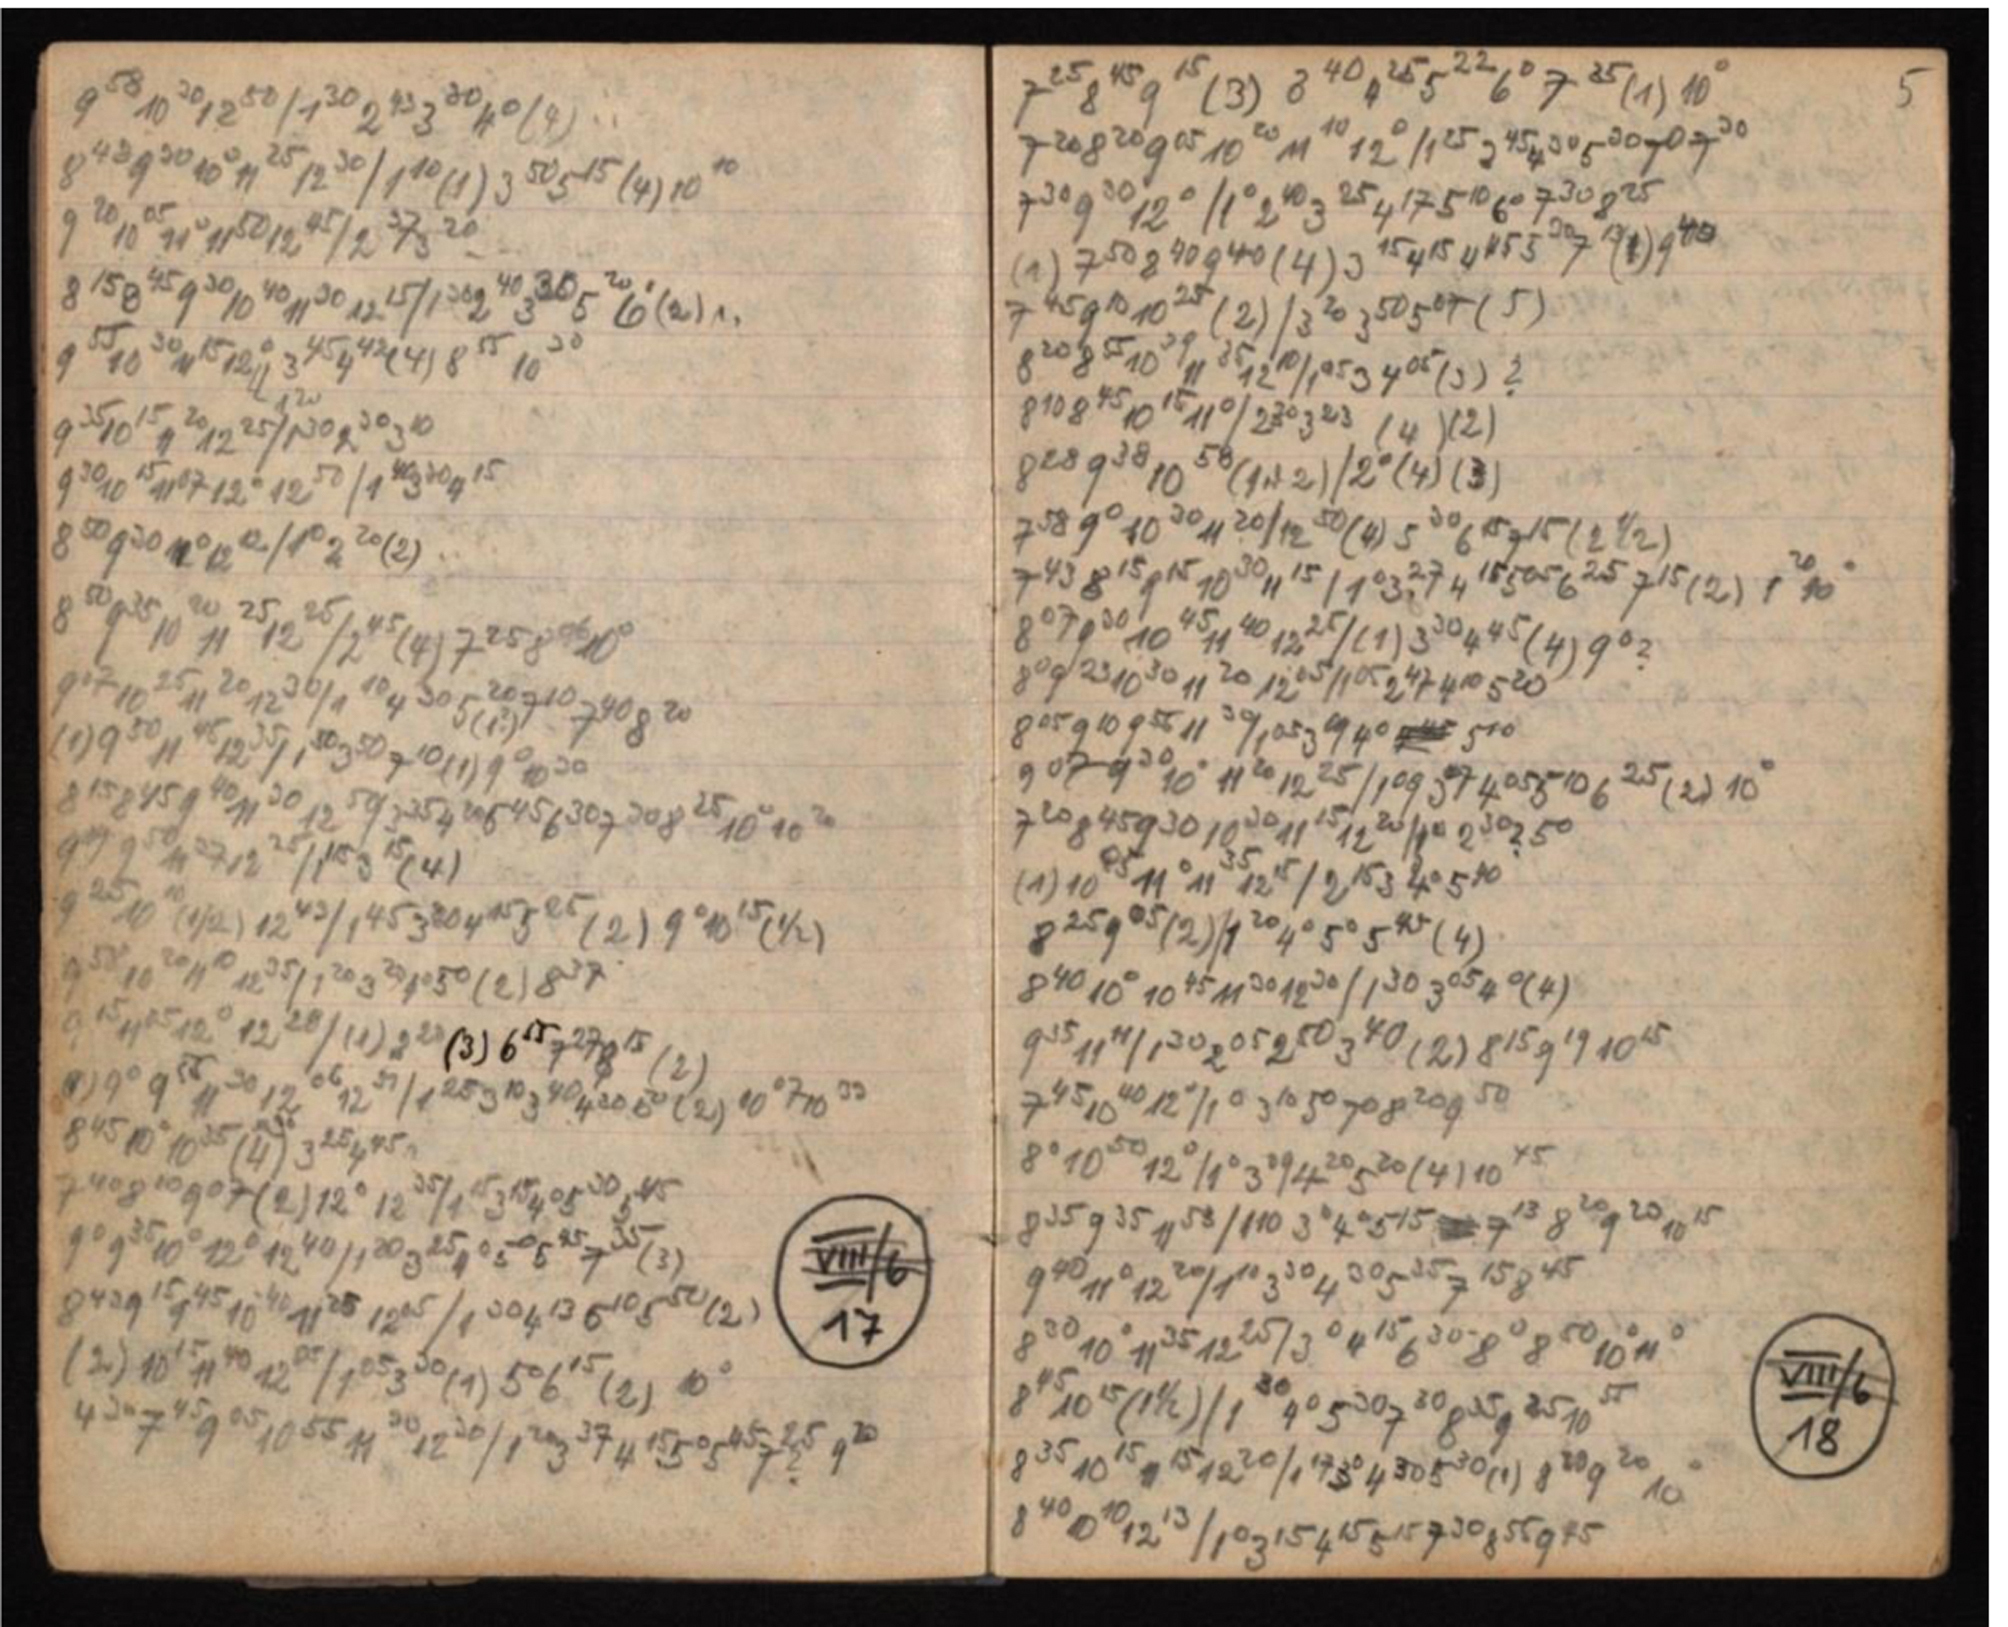 9⁵⁸10³⁰12⁵⁰/1³⁰2⁴³3³⁰4⁰(4)
8⁴³9³⁰10⁰11²⁵12³⁰/1¹⁰(1)3⁵⁰5¹⁵(4)10¹⁰
9²⁰10⁰⁵11⁰11⁵⁰12⁴⁵/2³⁷3²⁰
8¹⁵8⁴⁵9³⁰10⁴⁰11³⁰12¹⁵/1³⁰2⁴⁰3³⁰5²⁰6⁰(2)
9⁵⁵10³⁰11¹⁵12⁰ 3⁴⁵4⁴²(4)8⁵⁵10³⁰
1²⁰
9³⁵10¹⁵11²⁰12²⁵/1³⁰2³⁰3¹⁰
9³⁰10¹⁵11⁰⁷12⁰12⁵⁰/1⁴⁰3³⁰4¹⁵
8⁵⁰9³⁰11⁰12¹²/1⁰2²⁰(2)
8⁵⁰9³⁵10²⁰11²⁵12²⁵/2⁴⁵(4)7²⁵8⁰⁶10⁰
9⁰⁷10²⁵11²⁰12³⁰/1¹⁰4³⁰5²⁰7¹⁰7⁴⁰8²⁰
(1)9⁵⁰11⁴⁵12³⁵/1⁵⁰3⁵⁰7¹⁰(1)9⁰10³⁰
8¹⁵8⁴⁵9⁴⁰11³⁰12⁵⁰ 3³⁵4²⁰5⁴⁵6³⁰7³⁰8²⁵10⁰10²⁰
9⁵⁰11³⁷12²⁵/1¹⁵3¹⁵(4)
9²⁵10¹⁰(1/2)12⁴³/1⁴⁵3²⁰4¹⁵5²⁵(2)9⁰10¹⁵(½)
9⁵⁸10²⁰11¹⁰12³⁵/1²⁰3²⁰4⁰5⁰(2)8³⁷
9¹⁵11⁰⁵12⁰12²⁸/(1)2²³(3)6⁵⁵7²⁷8¹⁵(2)
9⁰9⁵⁵11³⁰12⁰⁶12⁵¹/1²⁵3¹⁰3⁴⁰4³⁰(2)10⁰⁷10³³
8⁴⁵10⁰10³⁵(4)3²⁵4⁴⁵
7⁴⁰8¹⁰9⁰⁷(2)12⁰12³⁵/1¹⁵3¹⁵4⁰⁵5³⁰5⁴⁵
9⁰9³⁵10⁰12⁰12⁴⁰/1²⁰3²⁵4⁰5⁰5⁴⁵7³⁵(3)
8⁴³9¹⁵9⁴⁵10⁴⁰11²⁵12⁰⁵/1³⁰4¹³5¹⁰5⁵⁰(2)
(2)10¹⁵11⁴⁰12⁰⁵/1⁰⁵3³⁰(1)5⁰6¹⁵(2)10⁰
4³⁰7⁴⁵9⁰⁵10⁵⁵11³⁰12³⁰/1²⁰3³⁷4¹⁵5⁰5⁴⁵7²⁵?9²⁰
VIII/6
17
5
7²⁵8⁴⁵9¹⁵(3)3⁴⁰4²⁵5²²6⁰7³⁵(1)10⁰
7²⁰8²⁰9⁰⁵10²⁰11¹⁰12⁰/1²⁵2⁴⁵4³⁰5³⁰7⁰7³⁰
7³⁰9³⁰12⁰/1⁰2⁴⁰3²⁵4¹⁷5¹⁰6⁰7³⁰8²⁵
(1)7⁵⁰8⁴⁰9⁴⁰(4)3¹⁵4¹⁵4⁴⁵5³⁰7¹⁰(1)9⁴⁰
7⁴⁵9¹⁰10²⁵(2)/3²⁰3⁵⁰5⁰⁷(5)
8²⁰8⁵⁵10³⁹11³⁵12¹⁰/1⁰⁵3 4⁰⁵(3)?
8¹⁰8⁴⁵10¹⁵11⁰/2³⁰3²³(4)(2)
8²⁸9³⁸10⁵⁸(1+2)/2⁰(4)(3)
7⁵⁸9⁰10³⁰11²⁰/12⁵⁰(4)5³⁰6¹⁵7¹⁵(2½)
7⁴³8¹⁵9¹⁵10³⁰11¹⁵/1⁰3²⁷4¹⁵5⁰⁵6²⁵7¹⁵(2) 9²⁰10⁰
8⁰⁷9³⁰10⁴⁵11⁴⁰12²⁵/(1)3³⁰4⁴⁵(4)9⁰?
8⁰9²³10³⁰11²⁰12⁰⁵/1⁰⁵2⁴⁷4¹⁰5²⁰
8⁰⁵9¹⁰9⁵⁵11³⁰/1⁰⁵3⁰⁹4⁰ 5¹⁰
9⁰⁷9³⁰10⁰11²⁰12²⁵/1⁰⁹3⁰⁷4⁰⁵5¹⁰6²⁵(2)10⁰
7²⁰8⁴⁵9³⁰10³⁰11¹⁵12²⁰/1⁰2³⁰?5⁰
(1)10⁰⁵11⁰11³⁵12¹⁵/2¹⁵3 4⁰5¹⁰
8²⁵9⁰⁵(2)/1²⁰4⁰5⁰5⁴⁵(4)
8⁴⁰10⁰10⁴⁵11³⁰12³⁰/1³⁰3⁰⁵4⁰(4)
9³⁵11¹¹/1³⁰2⁰⁵2⁵⁰3⁴⁰(2)8¹⁵9¹⁹10¹⁵
7⁴⁵10⁴⁰12⁰/1⁰3¹⁰5⁰7⁰8²⁰9⁵⁰
8⁰10⁵⁰12⁰/1⁰3⁰⁹4²⁰5²⁰(4)10⁴⁵
8³⁵9³⁵11⁵⁸/1¹⁰3⁰4⁰5¹⁵ 7¹³8²⁰9²⁰10¹⁵
9⁴⁰11⁰12²⁰/1¹⁰3³⁰4³⁰5³⁵7¹⁵8⁴⁵
8³⁰10⁰11³⁵12²⁵/3⁰4¹⁵6³⁰8⁰8⁵⁰10⁰11⁰
8⁴⁵10¹⁵(1½)/1³⁰4⁰5³⁰7³⁰8³⁵9³⁵10⁵⁵
8³⁵10¹⁵11¹⁵12²⁰/1¹⁷3⁰4³⁰5³⁰(1)8²⁰9²⁰10⁰
8⁴⁰10¹⁰12¹³/1⁰3¹⁵4¹⁵5¹⁵7³⁰8⁵⁵9⁴⁵
VIII/6
18